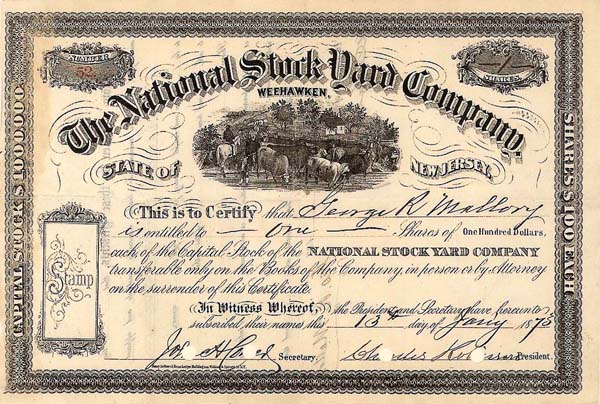 NUMBER
52
1
SHARES.
The National Stock Yard Company,
WEEHAWKEN,
STATE OF NEW JERSEY.
This is to Certify that George R. Mallory
is entitled to One Shares of One Hundred Dollars,
each, of the Capital Stock of the NATIONAL STOCK YARD COMPANY
transferable only on the Books of the Company, in person or by Attorney
on the surrender of this Certificate.
In Witness Whereof, the President and Secretary have hereunto
subscribed their names, this 13th day of Jany 187
Secretary. Charles President.
Stamp
CAPITAL STOCK $1000000
SHARES $100 EACH